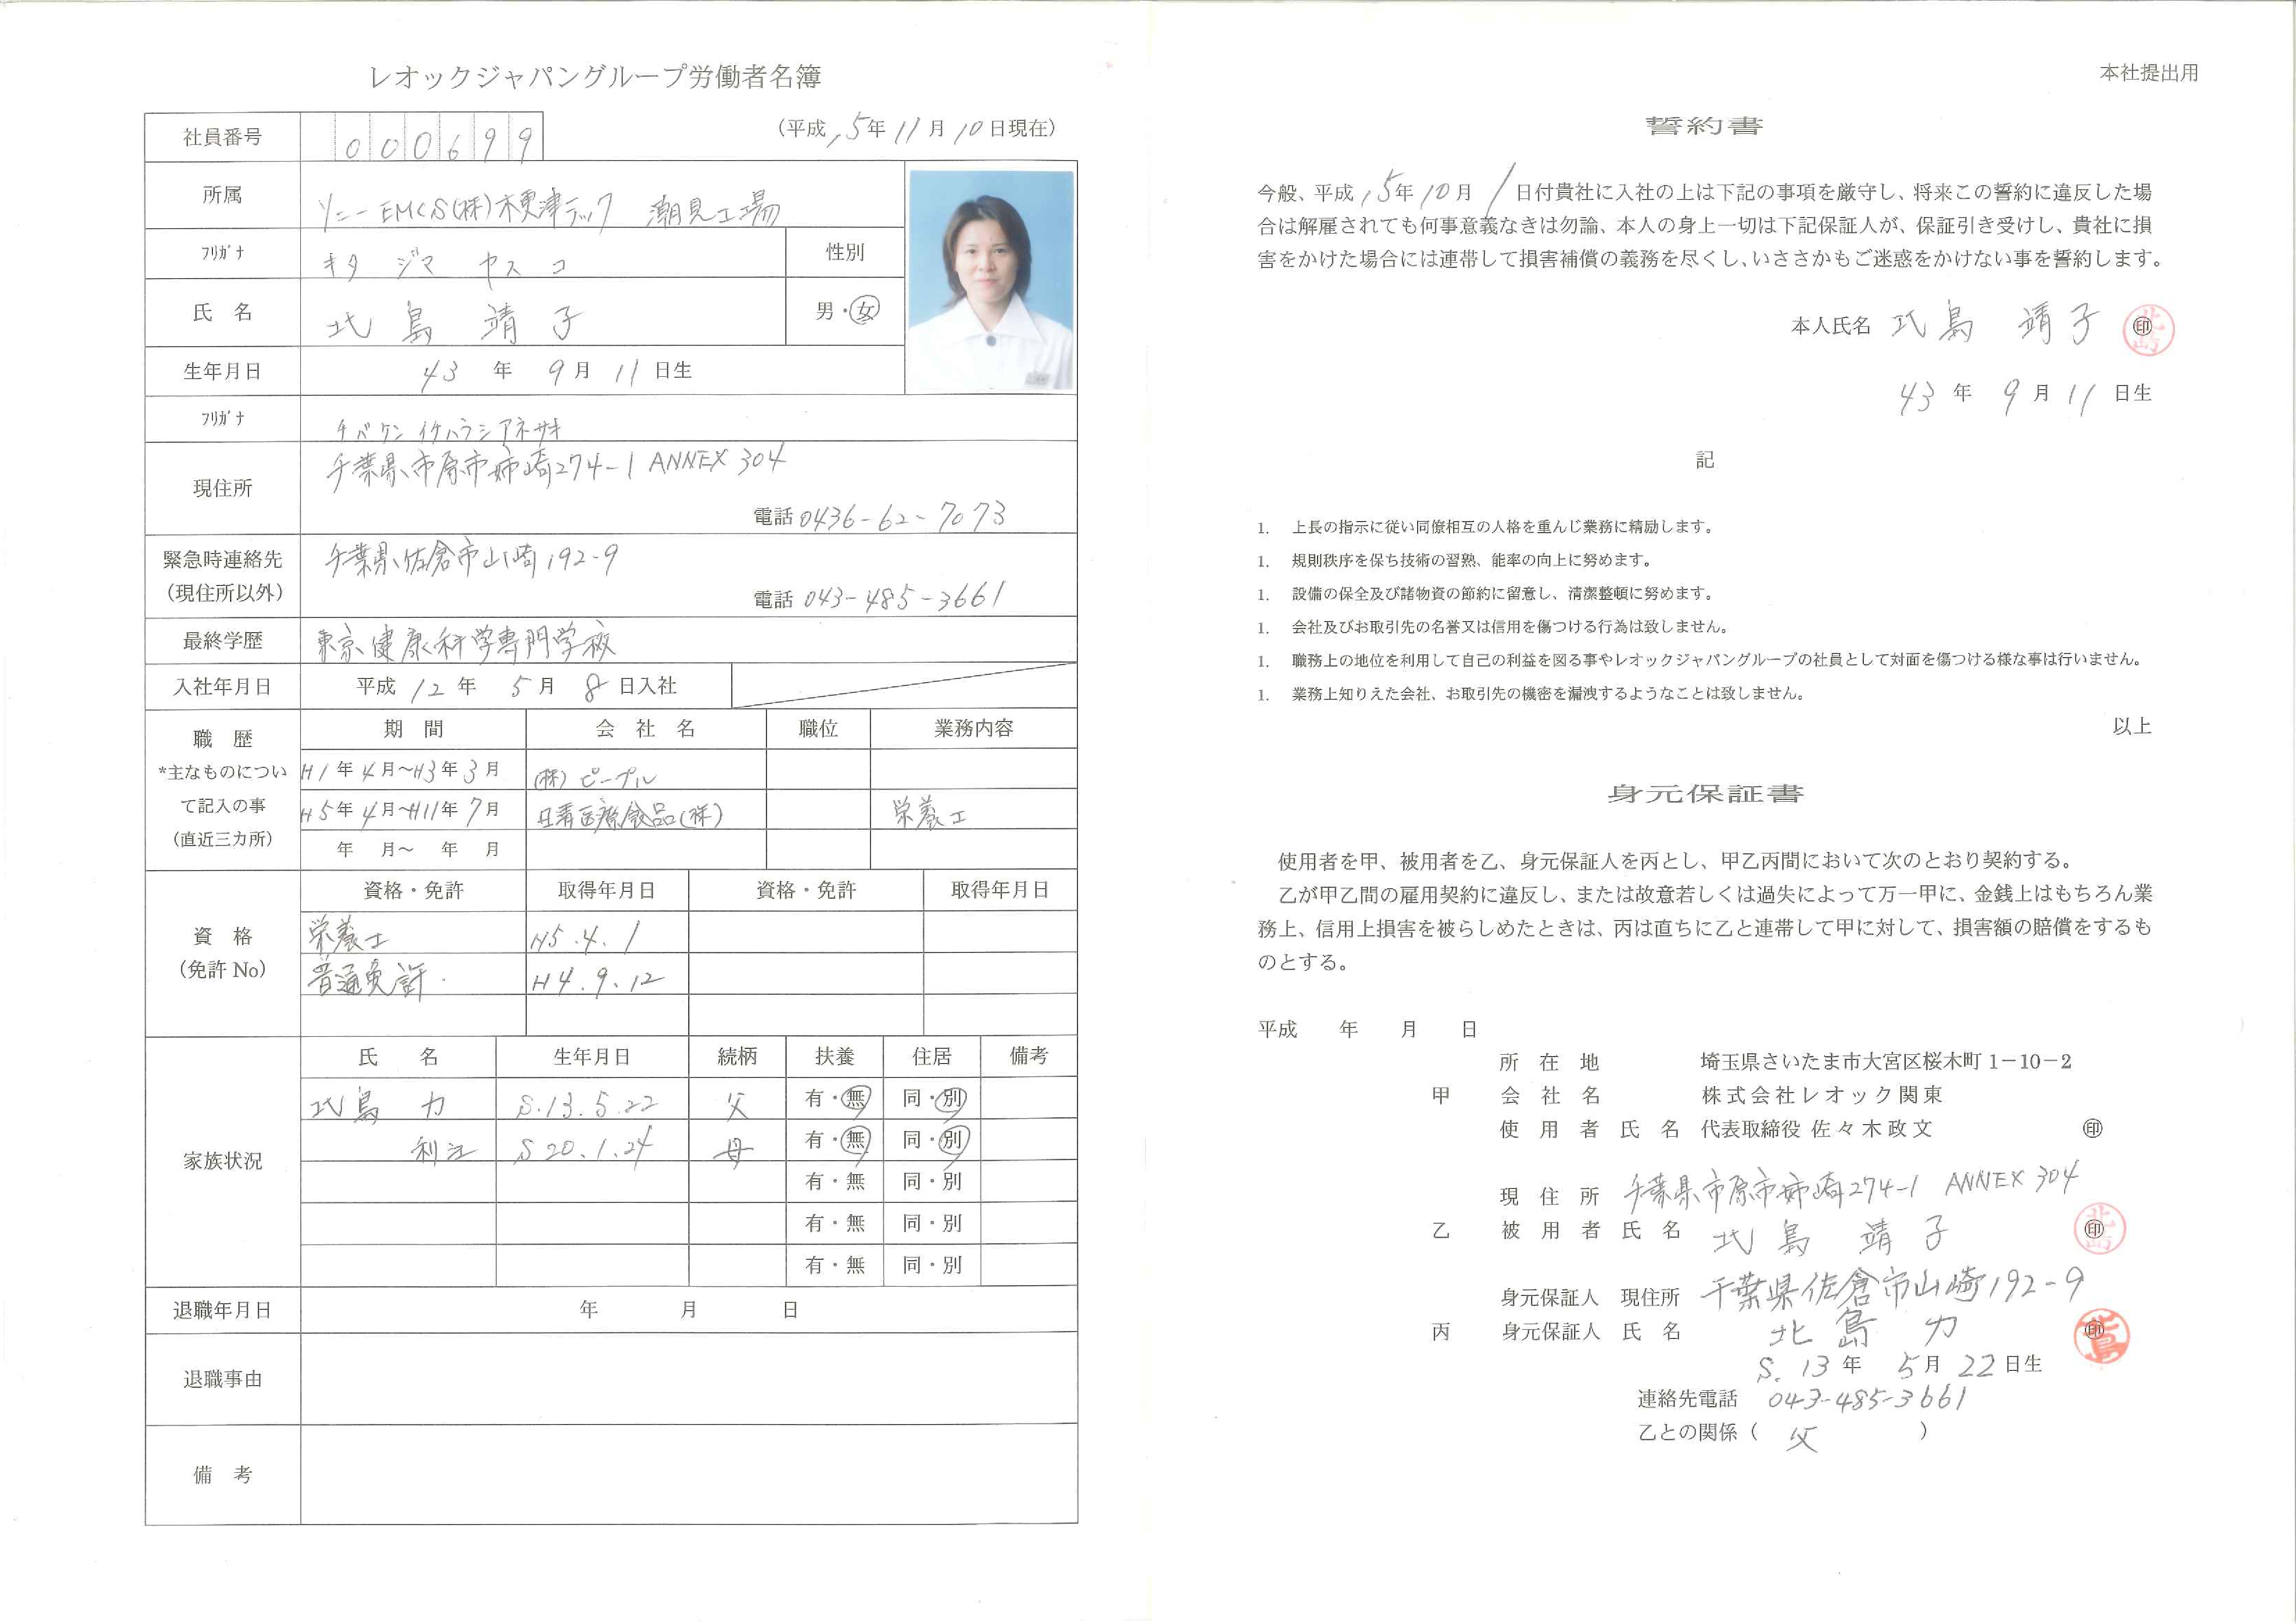 レオックジャパングループ労働者名簿
社員番号 000699 (平成15年11月10日現在)
所属 ソニーEMCS(株)木更津テック 潮見工場
ﾌﾘｶﾞﾅ キタ ジマ ヤス コ 性別
氏 名 北島 靖子 男・女
生年月日 43年 9月 11日生
ﾌﾘｶﾞﾅ チバケン イチハラシアネサキ
現住所 千葉県市原市姉崎274-1 ANNEX 304
電話 0436-62-7073
緊急時連絡先 千葉県佐倉市山崎192-9
(現住所以外) 電話 043-485-3661
最終学歴 東京健康科学専門学校
入社年月日 平成12年 5月 8日入社
職 歴 期 間 会 社 名 職位 業務内容
*主なものについ H1年4月～H3年3月 (株)ピープル
て記入の事 H5年4月～H11年7月 日清医療食品(株) 栄養士
(直近三カ所) 年 月～ 年 月
資格・免許 取得年月日 資格・免許 取得年月日
資 格 栄養士 H5.4.1
(免許 No) 普通免許 H4.9.12
氏 名 生年月日 続柄 扶養 住居 備考
北島 力 S.13.5.22 父 有・無 同・別
利江 S20.1.24 母 有・無 同・別
家族状況 有・無 同・別
有・無 同・別
有・無 同・別
退職年月日 年 月 日
退職事由
備 考
本社提出用
誓約書
今般、平成15年10月1日付貴社に入社の上は下記の事項を厳守し、将来この誓約に違反した場
合は解雇されても何事意義なきは勿論、本人の身上一切は下記保証人が、保証引き受けし、貴社に損
害をかけた場合には連帯して損害補償の義務を尽くし、いささかもご迷惑をかけない事を誓約します。
本人氏名 北島 靖子 印
43年 9月 11日生
記
1. 上長の指示に従い同僚相互の人格を重んじ業務に精励します。
1. 規則秩序を保ち技術の習熟、能率の向上に努めます。
1. 設備の保全及び諸物資の節約に留意し、清潔整頓に努めます。
1. 会社及びお取引先の名誉又は信用を傷つける行為は致しません。
1. 職務上の地位を利用して自己の利益を図る事やレオックジャパングループの社員として対面を傷つける様な事は行いません。
1. 業務上知りえた会社、お取引先の機密を漏洩するようなことは致しません。
以上
身元保証書
使用者を甲、被用者を乙、身元保証人を丙とし、甲乙丙間において次のとおり契約する。
乙が甲乙間の雇用契約に違反し、または故意若しくは過失によって万一甲に、金銭上はもちろん業
務上、信用上損害を被らしめたときは、丙は直ちに乙と連帯して甲に対して、損害額の賠償をするも
のとする。
平成 年 月 日
所 在 地 埼玉県さいたま市大宮区桜木町1－10－2
甲 会 社 名 株式会社レオック関東
使 用 者 氏 名 代表取締役 佐々木政文 印
現 住 所 千葉県市原市姉崎274-1 ANNEX 304
乙 被 用 者 氏 名 北島 靖子 印
身元保証人 現住所 千葉県佐倉市山崎192-9
丙 身元保証人 氏 名 北島 力 印
S.13年 5月22日生
連絡先電話 043-485-3661
乙との関係( 父 )